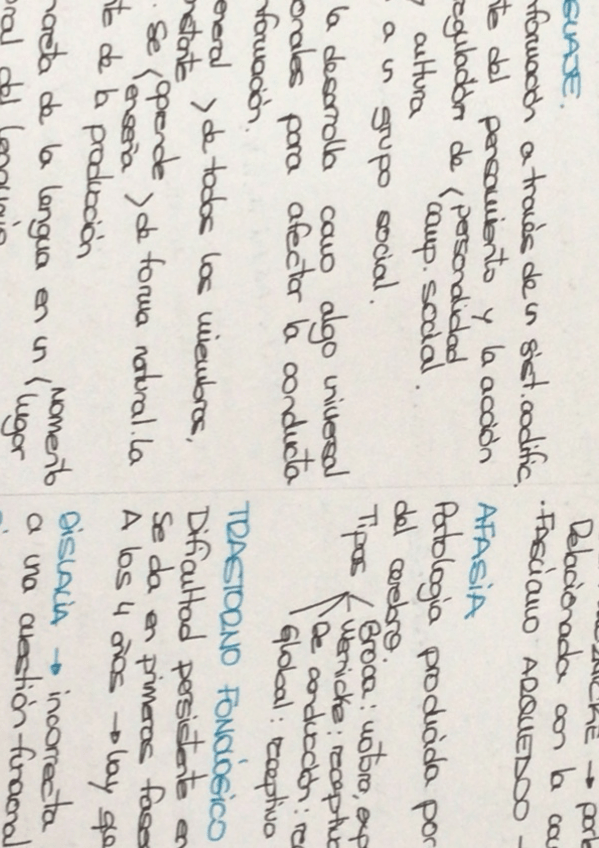 GUAJE.
nformación a través de un sist. codific.
te del pensamiento y la acción
egulación de < personalidad
comp. social.
cultura
a un grupo social.
la desarrolla como algo universal
onales para afectar la conducta
nformación.
eneral > de todos los miembros,
Se < aprende
enseña > de forma natural. la
te de la producción
ncreta de la lengua en un < Momento
lugar
→ parte
Relacionada con la
· Fascículo ARQUEADO -
AFASIA
Patología producida por
del cerebro.
Tipos < Broca: motora, exp
Wernicke: receptiv
De conducción: re
Global: receptiva
TRASTORNO FONOLÓGICO
Dificultad persistente en
Se da en primeras fases
A los 4 años → hay que
DISLALIA → incorrecta
a una cuestión funcional